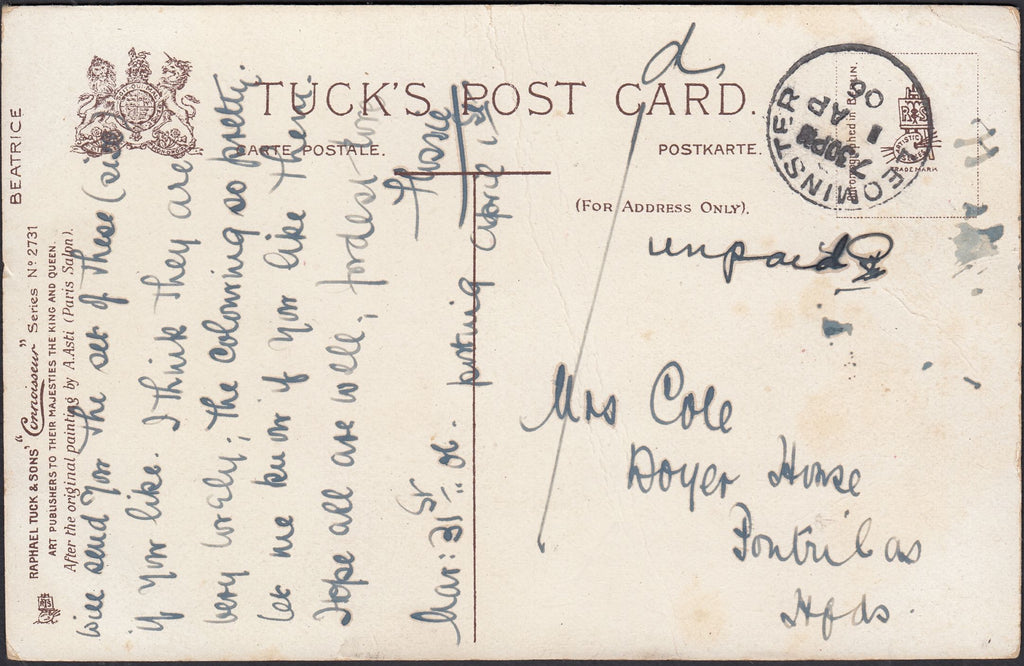 TUCK'S POST CARD.
CARTE POSTALE.
POSTKARTE.
(FOR ADDRESS ONLY).
BEATRICE
RAPHAEL TUCK & SONS' "Connoisseur" Series No 2731
ART PUBLISHERS TO THEIR MAJESTIES THE KING AND QUEEN.
After the original painting by A.Asti (Paris Salon).
will send you the set of these (six)
if you like. I think they are
very lovely; the colouring so pretty.
let me know if you like them
Hope all are well, fondest love
Mar: 31st 06. posting April 1st
LEOMINSTER
7.30PM
1
AP
06
TRADE MARK
d
1
unpaid
Mrs Cole
Doyer House
Pontrilas
Hfds.